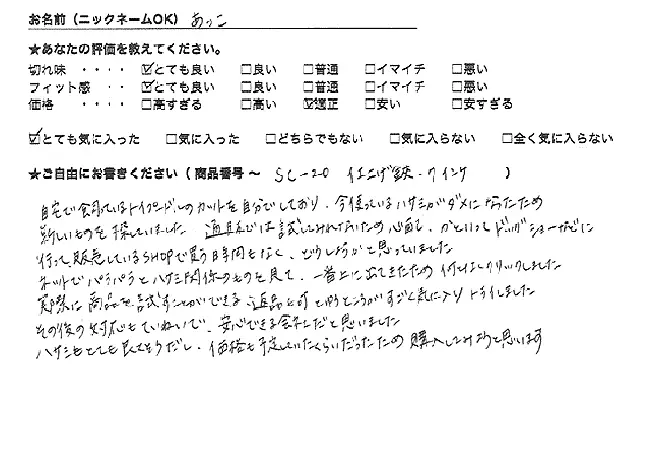 お名前（ニックネームOK） あっこ
★あなたの評価を教えてください。
切れ味 ・・・・ ☑とても良い □良い □普通 □イマイチ □悪い
フィット感 ・・・・ ☑とても良い □良い □普通 □イマイチ □悪い
価格 ・・・・ □高すぎる □高い ☑適正 □安い □安すぎる
☑とても気に入った □気に入った □どちらでもない □気に入らない □全く気に入らない
★ご自由にお書きください（ 商品番号 ～ SC-20 仕上げ鋏・ウイング ）
自宅で飼っているトイプードルのカットを自分でしており、今使っているハサミがダメになったため
新しいものを探していました 通販では試してみれないため心配で、かといってドッグショーなどに
行って販売しているSHOPで買う時間もなく、どうしようかと思っていました
ネットでパラパラとハサミ関係のものを見て、一番上に出てきたため クリックしました
実際に商品を試すことができる 返品も可というところがすごく気に入りトライしました
その後の対応もていねいで、安心できる会社だと思いました
ハサミもとても良さそうだし、価格も予定していたくらいだったため購入してみようと思います